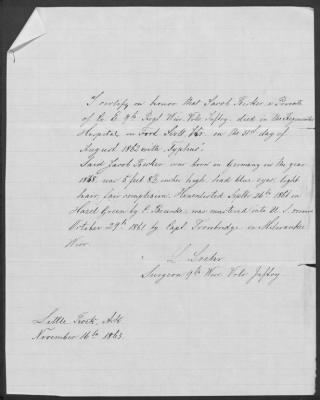 I certify on honor that Jacob Fecker a Private
of Co. E. 9th Regt Wis. Vols. Inftry. died in the Regimental
Hospital, in Ford Scott Ks. on the 31st day of
August 1862 with Typhus.
Said Jacob Fecker was born in Germany in the year
was 5 feet 8½ inches high, had blue eyes, light
hair, fair complexion. He enlisted Septb. 26th 1861 in
Hazel Green by was mustered into U. S. service
October 29th 1861 by Capt. Trowbridge in Milwaukee
Wis.
Surgeon 9th Wis. Vols. Inftry
Little Rock, Ark
November 16th 1863.